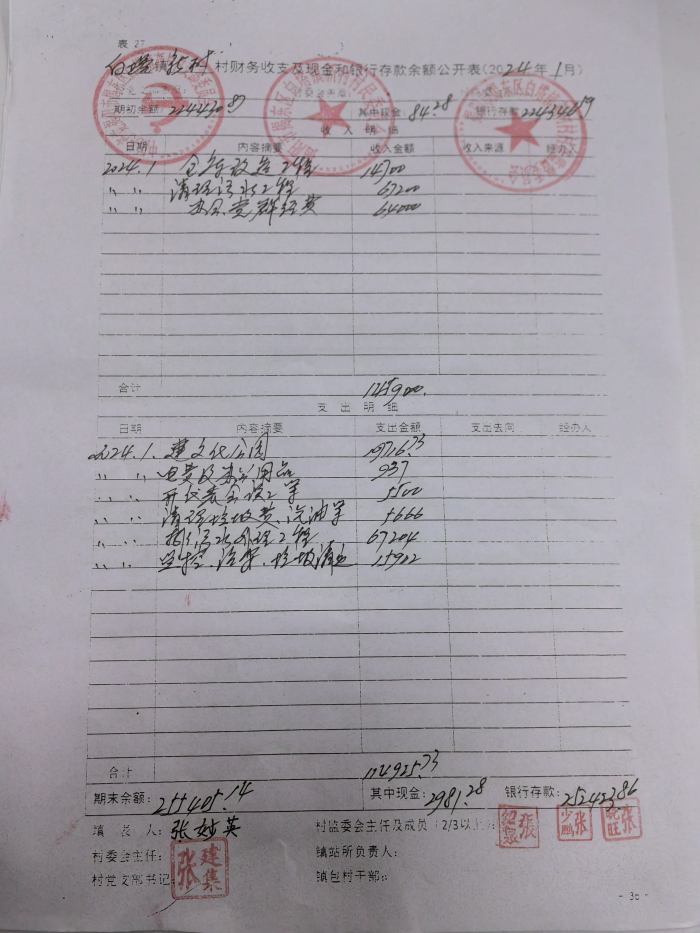 表 27
白塔镇 村财务收支及现金和银行存款余额公开表(2024年1月)
期初余额: 224430.87 其中现金: 84.28 银行存款: 224346.59
收 入 明 细
日期 内容摘要 收入金额 收入来源 经办人
2024.1 仓库改造工程 14700
〃 〃 清理污水工程 67200
〃 〃 党群经费 64000
合计 145900.
支 出 明 细
日期 内容摘要 支出金额 支出去向 经办人
2024.1. 建文化公园 19716.73
〃 〃 电费及办公用品 937
〃 〃 开代表会误工等 5500
〃 〃 清理垃圾费、汽油等 5666
〃 〃 污水处理工程 67204
〃 〃 垃圾清运 15902
合计 114925.73
期末余额: 255405.14 其中现金: 2981.28 银行存款: 252423.86
填 表 人: 张妙英 村监委会主任及成员(2/3以上):
村委会主任: 镇站所负责人:
村党支部书记: 镇包村干部:
张建集
- 36 -